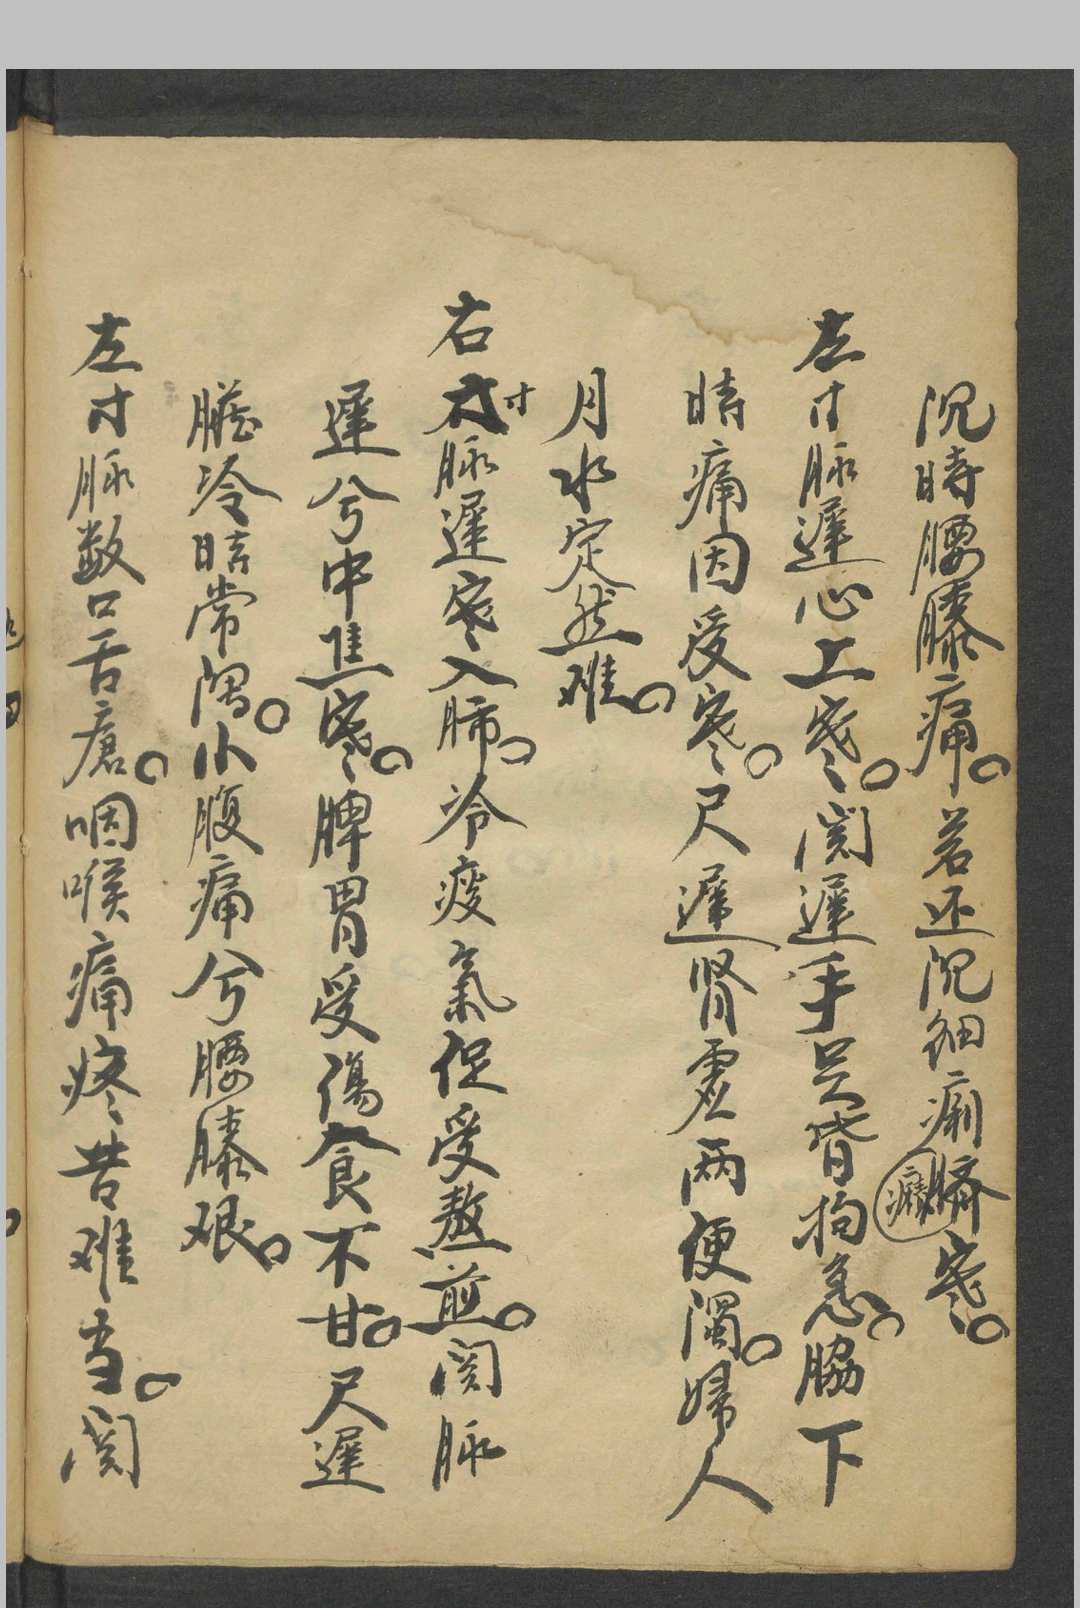 沉時腰膝痛。若还沉細痢臍寒。
癪
左寸脉遲心上寒。関遲手足皆拘急。脇下
時痛因受寒。尺遲肾虛两便濁。婦人
月水定然难。
右寸脉遲寒入肺。冷痰氣促受熬煎。関脉
遲兮中焦寒。脾胃受傷食不甘。尺遲
臟冷時常濁。小腹痛兮腰膝艰。
左寸脉数口舌瘡。咽喉痛疼苦难当。関